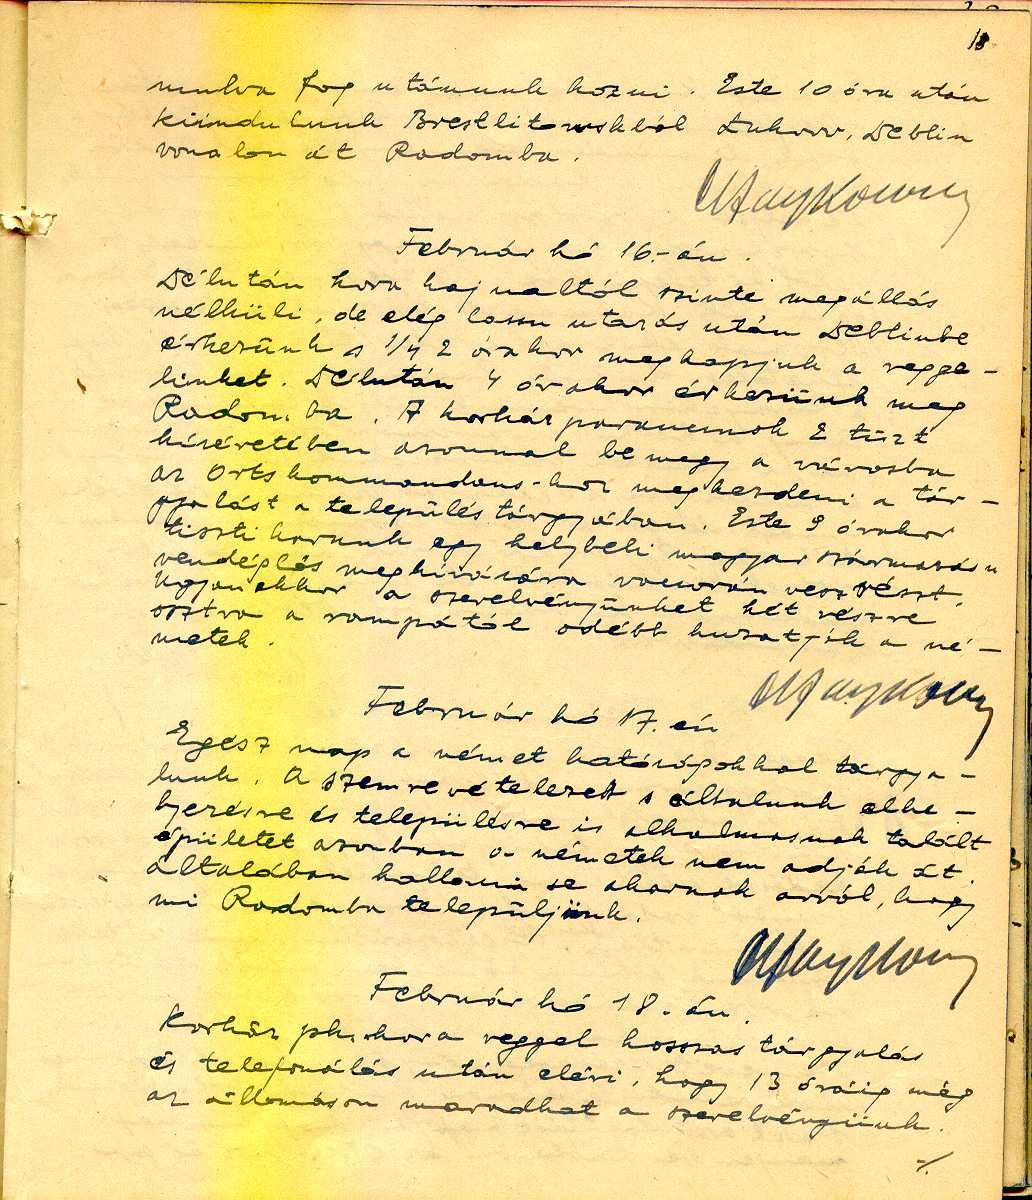 18.
mulva fog utánunk hozni. Este 10 óra után
kiindulunk Brestlitowskból Lukow, Deblin
vonalon át Radomba.
Február hó 16.-án.
Délután kora hajnaltól szinte megállás
nélküli, de elég lassu utazás után Deblinbe
érkezünk s 1/4 2 órakor megkapjuk a regge-
linket. Délután 4 órakor érkezünk meg
Radomba. A kórházparancsnok 2 tiszt
kíséretében azonnal bemegy a városba
az Ortskommandans-hoz megkezdeni a tár-
gyalást a település tárgyában. Este 9 órakor
tisztikarunk egy helybeli magyar származásu
vendéglős meghívására vacsorán vesz részt.
Ugyanekkor a szerelvényünket két részre
osztva a rampától odébb huzatják a né-
metek.
Február hó 17.-én
Egész nap a német hatóságokkal tárgya-
lunk. A szemrevételezett s általunk elhe-
lyezésre és településre is alkalmasnak talált
épületet azonban a németek nem adják át.
Általában hallani se akarnak arról, hogy
mi Radomba települjünk.
Február hó 18.-án.
Kórház pk. kora reggel hosszas tárgyalás
és telefonálás után eléri, hogy 13 óráig még
az állomáson maradhat a szerelvényünk.
./.